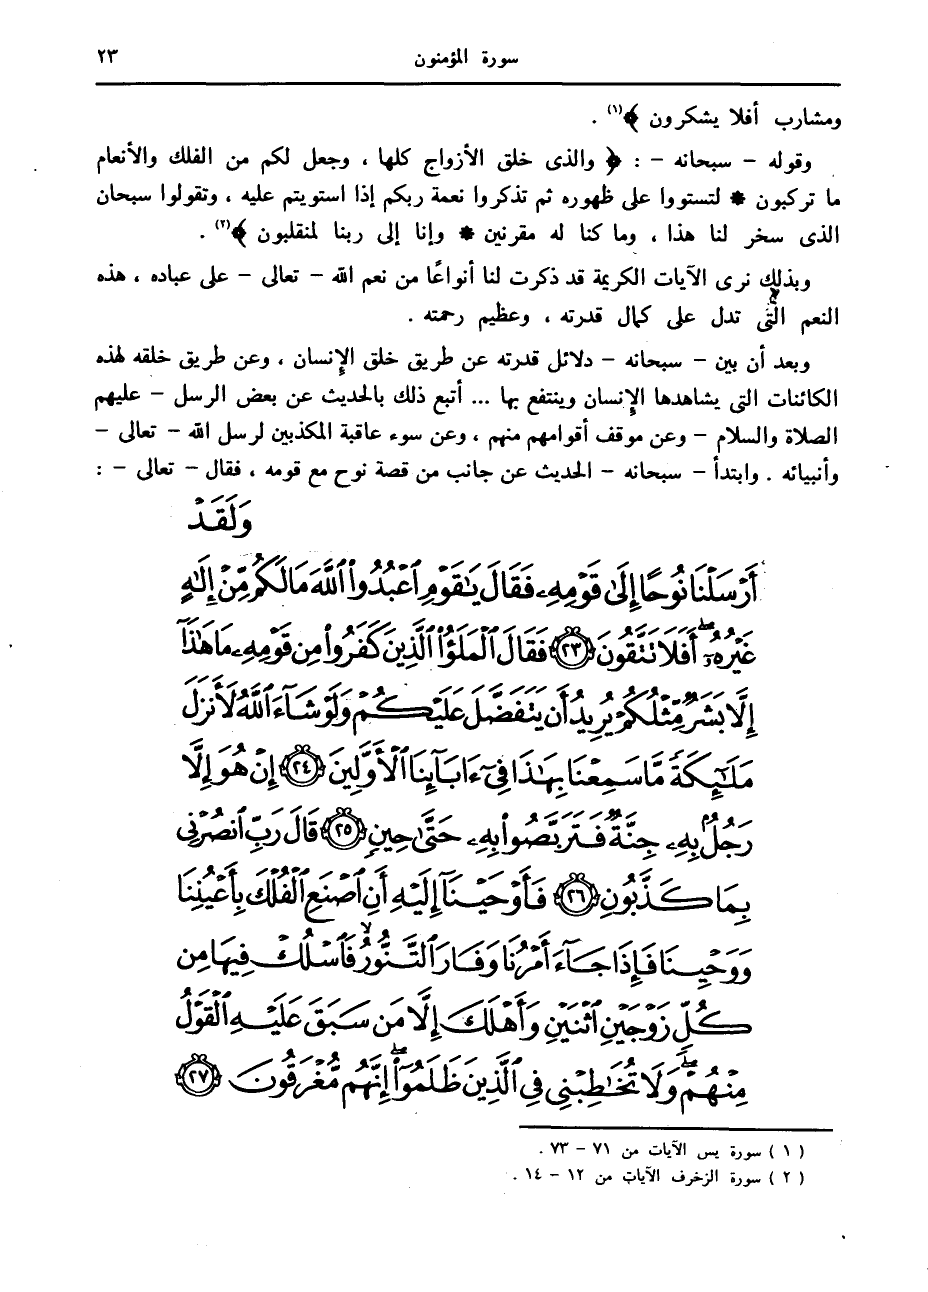 سورة المؤمنون ٢٣
ومشارب أفلا يشكرون ﴾(١) .
وقوله – سبحانه – : ﴿ والذى خلق الأزواج كلها ، وجعل لكم من الفلك والأنعام
ما تركبون * لتستووا على ظهوره ثم تذكروا نعمة ربكم إذا استويتم عليه ، وتقولوا سبحان
الذى سخر لنا هذا ، وما كنا له مقرنين * وإنا إلى ربنا لمنقلبون ﴾(٢) .
وبذلك نرى الآيات الكريمة قد ذكرت لنا أنواعًا من نعم الله – تعالى – على عباده ، هذه
النعم التى تدل على كمال قدرته ، وعظيم رحمته .
وبعد أن بين – سبحانه – دلائل قدرته عن طريق خلق الإنسان ، وعن طريق خلقه لهذه
الكائنات التى يشاهدها الإنسان وينتفع بها ... أتبع ذلك بالحديث عن بعض الرسل – عليهم
الصلاة والسلام – وعن موقف أقوامهم منهم ، وعن سوء عاقبة المكذبين لرسل الله – تعالى –
وأنبيائه . وابتدأ – سبحانه – الحديث عن جانب من قصة نوح مع قومه ، فقال – تعالى – :
وَلَقَدْ
أَرْسَلْنَا نُوحًا إِلَىٰ قَوْمِهِۦ فَقَالَ يَٰقَوْمِ ٱعْبُدُوا۟ ٱللَّهَ مَا لَكُم مِّنْ إِلَٰهٍ
غَيْرُهُۥٓ ۖ أَفَلَا تَتَّقُونَ ٢٣ فَقَالَ ٱلْمَلَؤُا۟ ٱلَّذِينَ كَفَرُوا۟ مِن قَوْمِهِۦ مَا هَٰذَآ
إِلَّا بَشَرٌ مِّثْلُكُمْ يُرِيدُ أَن يَتَفَضَّلَ عَلَيْكُمْ وَلَوْ شَآءَ ٱللَّهُ لَأَنزَلَ
مَلَٰٓئِكَةً مَّا سَمِعْنَا بِهَٰذَا فِىٓ ءَابَآئِنَا ٱلْأَوَّلِينَ ٢٤ إِنْ هُوَ إِلَّا
رَجُلٌۢ بِهِۦ جِنَّةٌ فَتَرَبَّصُوا۟ بِهِۦ حَتَّىٰ حِينٍ ٢٥ قَالَ رَبِّ ٱنصُرْنِى
بِمَا كَذَّبُونِ ٢٦ فَأَوْحَيْنَآ إِلَيْهِ أَنِ ٱصْنَعِ ٱلْفُلْكَ بِأَعْيُنِنَا
وَوَحْيِنَا فَإِذَا جَآءَ أَمْرُنَا وَفَارَ ٱلتَّنُّورُ ۙ فَٱسْلُكْ فِيهَا مِن
كُلٍّ زَوْجَيْنِ ٱثْنَيْنِ وَأَهْلَكَ إِلَّا مَن سَبَقَ عَلَيْهِ ٱلْقَوْلُ
مِنْهُمْ ۖ وَلَا تُخَٰطِبْنِى فِى ٱلَّذِينَ ظَلَمُوٓا۟ ۖ إِنَّهُم مُّغْرَقُونَ ٢٧
( ١ ) سورة يس الآيات من ٧١ – ٧٣ .
( ٢ ) سورة الزخرف الآيات من ١٢ – ١٤ .